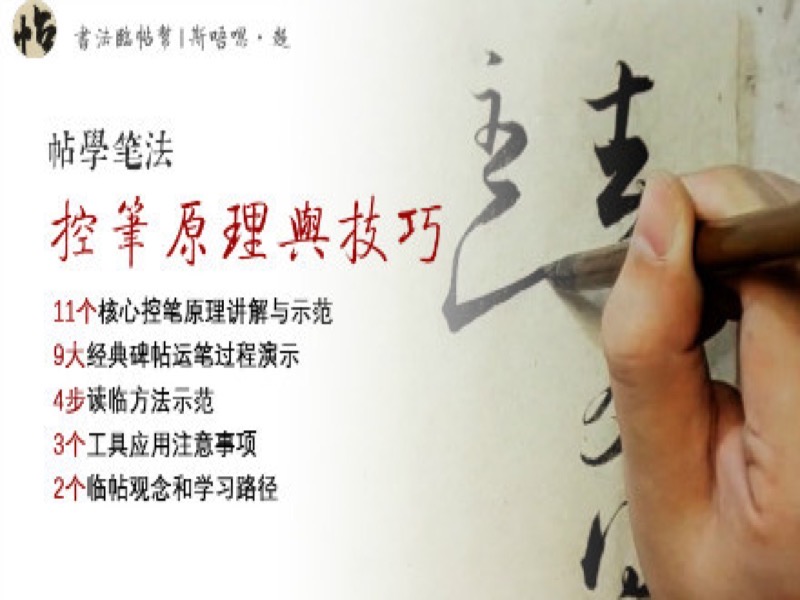 帖
書法臨帖幫|斯唔嘿·超
帖學笔法
控筆原理與技巧
11个核心控笔原理讲解与示范
9大经典碑帖运笔过程演示
4步读临方法示范
3个工具应用注意事项
2个临帖观念和学习路径